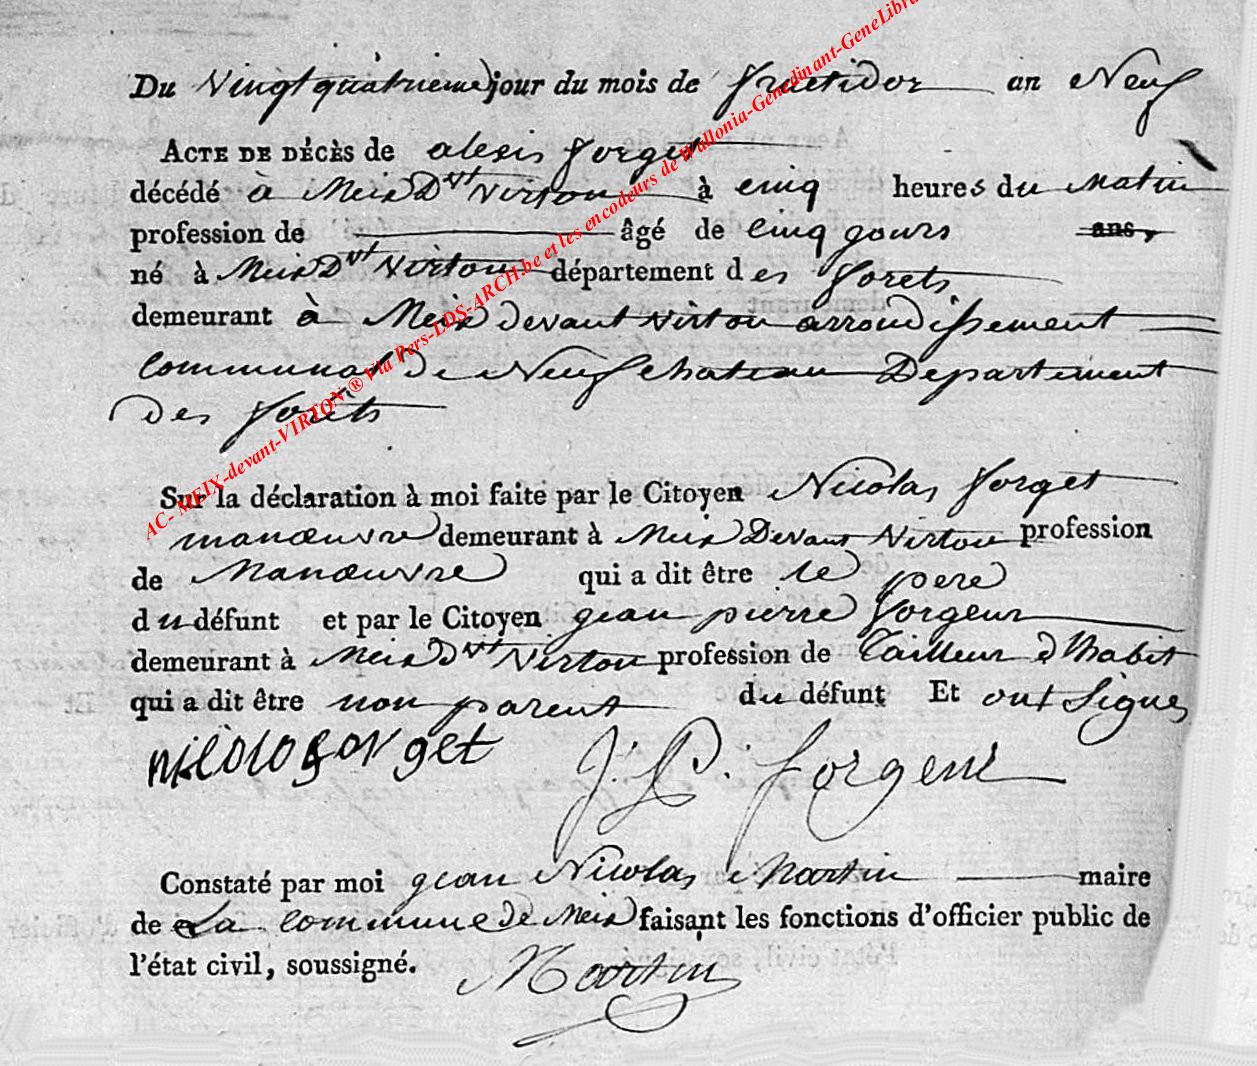 Du Vingt quatrieme jour du mois de fructidor an Neuf
ACTE DE DÉCÈS de alexis forget
décédé à Meix Dvt Virton à cinq heures du Matin
profession de âgé de cinq gours ans,
né à Meix Dvt Virton département des forets
demeurant à Meix devant virton arrondissement
communal de Neufchateau Departement
Des forêts
Sur la déclaration à moi faite par le Citoyen Nicolas forget
manœuvre demeurant à Meix Devant Virton profession
de Manœuvre qui a dit être le pere
du défunt et par le Citoyen gean pierre forgeur
demeurant à Meix Dvt Virton profession de Tailleur d'habit
qui a dit être non parent du défunt Et ont Signe
nicolas forget J. P. forgeur
Constaté par moi gean Nicolas Martin maire
de La commune de Meix faisant les fonctions d'officier public de
l'état civil, soussigné. Martin
AC- MEIX-devant-VIRTON ® Via Pers-LDS-ARCH.be et les encodeurs de Wallonia-Genedinant-GeneLibra